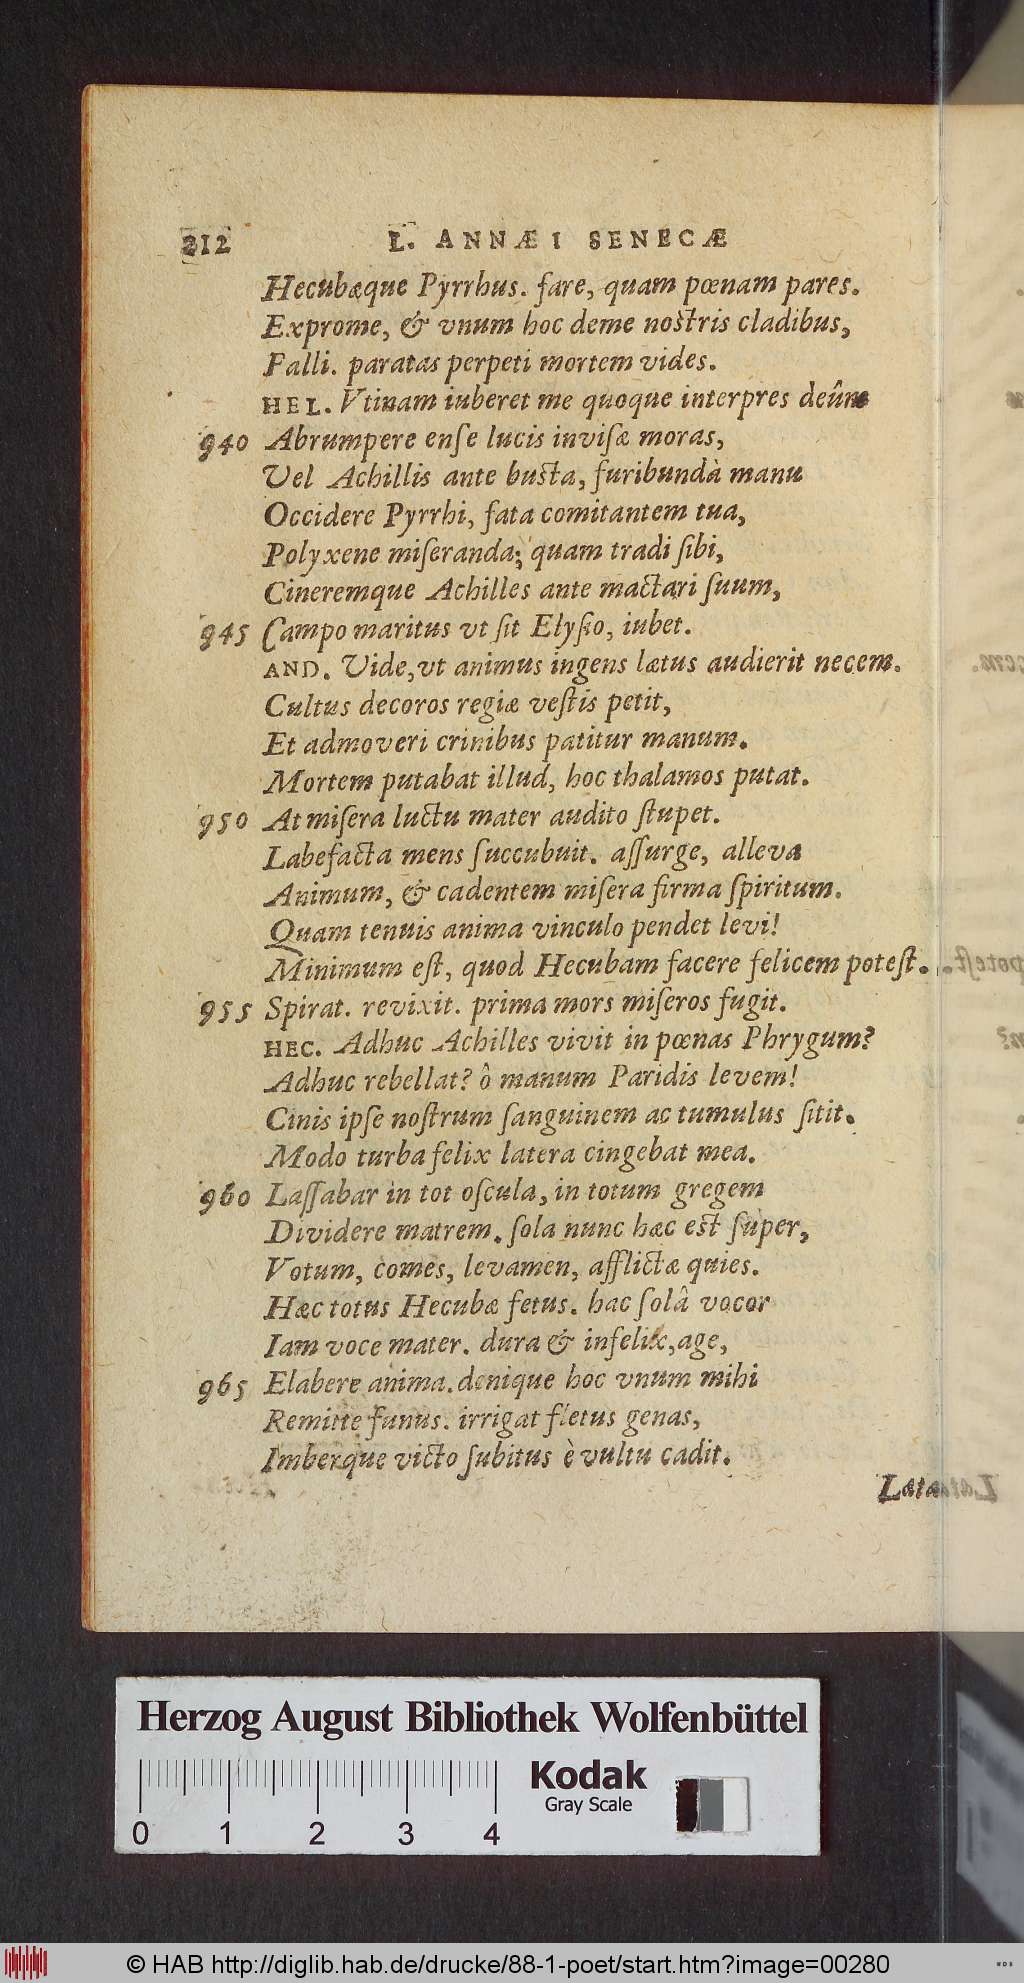 212 L. ANNÆI SENECÆ
Hecubæque Pyrrhus. fare, quam pœnam pares.
Exprome, & vnum hoc deme noſtris cladibus,
Falli. paratas perpeti mortem vides.
HEL. Vtinam iuberet me quoque interpres deûm
940 Abrumpere enſe lucis inviſæ moras,
Vel Achillis ante buſta, furibundà manu
Occidere Pyrrhi, fata comitantem tua,
Polyxene miſeranda; quam tradi ſibi,
Cineremque Achilles ante mactari ſuum,
945 Campo maritus vt ſit Elyſio, iubet.
AND. Vide, vt animus ingens lætus audierit necem.
Cultus decoros regiæ veſtis petit,
Et admoveri crinibus patitur manum.
Mortem putabat illud, hoc thalamos putat.
950 At miſera luctu mater audito ſtupet.
Labefacta mens ſuccubuit. aſſurge, alleva
Animum, & cadentem miſera firma ſpiritum.
Quam tenuis anima vinculo pendet levi!
Minimum eſt, quod Hecubam facere felicem poteſt.
955 Spirat. revixit. prima mors miſeros fugit.
HEC. Adhuc Achilles vivit in pœnas Phrygum?
Adhuc rebellat? ô manum Paridis levem!
Cinis ipſe noſtrum ſanguinem ac tumulus ſitit.
Modo turba felix latera cingebat mea.
960 Laſſabar in tot oſcula, in totum gregem
Dividere matrem. ſola nunc hæc eſt ſuper,
Votum, comes, levamen, afflictæ quies.
Hæc totus Hecubæ fetus. hac ſolâ vocor
Iam voce mater. dura & infelix, age,
965 Elabere anima. denique hoc vnum mihi
Remitte funus. irrigat fletus genas,
Imberque victo ſubitus è vultu cadit.
Læta
Herzog August Bibliothek Wolfenbüttel
Kodak
Gray Scale
0 1 2 3 4
© HAB http://diglib.hab.de/drucke/88-1-poet/start.htm?image=00280